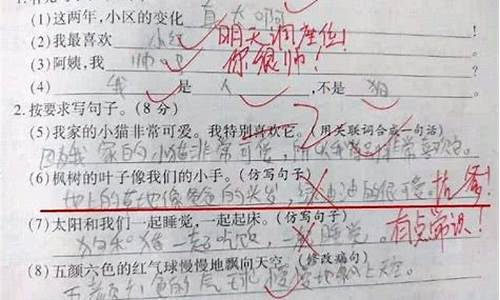 (1)这两年,小区的变化 真大啊
(2)我最喜欢 小红 明天调座位!
(3)阿姨,我 帅吧 你很帅!
(4) 我 是 人 ,不是 狗
2.按要求写句子。(8分)
(5)我家的小猫非常可爱。我特别喜欢它。(用关联词合成一句话)
因为我家的小猫非常可爱,所以我 非常喜欢它。
(6)枫树的叶子像我们的小手。(仿写句子)
地上的草地像爸爸的头发,绿油油的很可爱。
(7)太阳和我们一起睡觉,一起起床。(仿写句子)
狗和猪一起吃饭,一 睡觉。 有点常识!
(8)五颜六色的红气球慢慢地飘向天空。(修改病句)
五颜六色的气球慢慢地飘上天空。